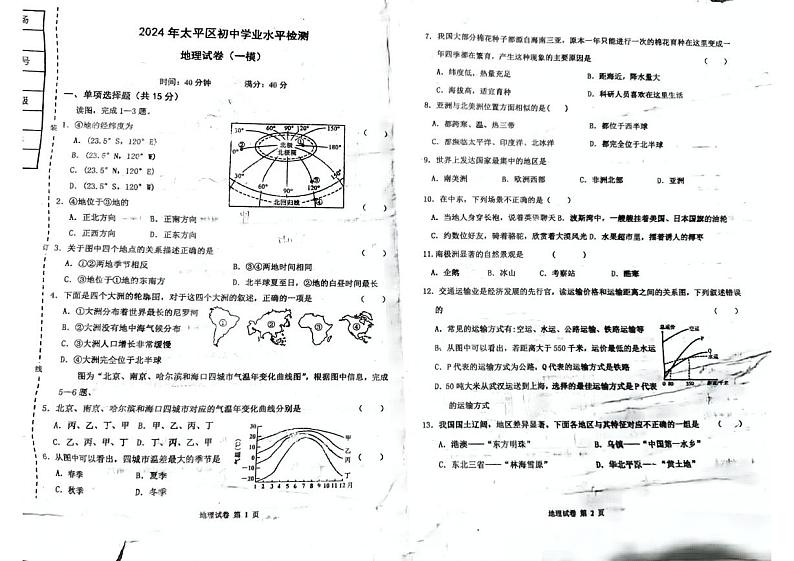 2024 年太平区初中学业水平检测
地理试卷（一模）
时间：40 分钟 满分：40 分
一、单项选择题（共 15 分）
读图，完成 1—3 题。
1. ④地的经纬度为 （ ）
A. (23.5° S，120° E)
B. (23.5° N，120° W)
C. (23.5° N，120° E)
D. (23.5° S，120° W)
30° 60° 90° 120° 150°
0° 180°
北极
北极圈
30° 150°
60° 90° 120°
北回归线
① ② ③ ④
2. ④地位于③地的 （ ）
A. 正北方向 B. 正南方向
C. 正西方向 D. 正东方向
3. 关于图中四个地点的关系描述正确的是 （ ）
A. ①②两地季节相反 B. ③④两地时间相同
C. ③地位于①地的东南方 D. 北半球夏至日，②地的白昼时间最长
4. 下面是四个大洲的轮廓图，对于这四个大洲的叙述，正确的一项是 （ ）
A. ①大洲分布着世界最长的尼罗河
B. ②大洲没有地中海气候分布
C. ③大洲人口增长非常缓慢
D. ④大洲完全位于北半球
① ② ③ ④
图为“北京、南京、哈尔滨和海口四城市气温年变化曲线图”，根据图中信息，完成
5—6 题。
5. 北京、南京、哈尔滨和海口四城市对应的气温年变化曲线分别是 （ ）
A. 丙、乙、丁、甲 B. 甲、乙、丙、丁
C. 乙、丙、甲、丁 D. 丁、丙、乙、甲
6. 从图中可以看出，四城市温差最大的季节是 （ ）
A. 春季 B. 夏季
C. 秋季 D. 冬季
气温(℃)
30
20
10
0
-10
-20
1 2 3 4 5 6 7 8 9 10 11 12月
甲
乙
丙
丁
装
订
线
号
级
地理试卷 第 1 页
7. 我国大部分棉花种子都源自海南三亚，原本一年只能进行一次的棉花育种在这里变成一
年四季都在繁育，产生这种现象的主要原因是 （ ）
A. 纬度低，热量充足 B. 距海近，降水量大
C. 海拔高，适宜育种 D. 科研人员喜欢在这里生活
8. 亚洲与北美洲位置方面相似的是（ ）
A. 都跨寒、温、热三带 B. 都位于西半球
C. 都濒临太平洋、印度洋、北冰洋 D. 都完全位于北半球
9. 世界上发达国家最集中的地区是 （ ）
A. 南美洲 B. 欧洲西部 C. 非洲北部 D. 亚洲
10. 在中东，下列场景不正确的是（ ）
A. 当地人身穿长袍，说着英语聊天 B. 波斯湾中，一艘艘挂着美国、日本国旗的油轮
C. 约数位好友，骑着骆驼，欣赏着大漠风光 D. 水果超市里，摆着诱人的椰枣
11. 南极洲显著的自然景观是 （ ）
A. 企鹅 B. 冰山 C. 考察站 D. 酷寒
12. 交通运输业是经济发展的先行官，读运输价格和运输距离之间的关系图，下列叙述错误
的 （ ）
A. 常见的运输方式有：空运、水运、公路运输、铁路运输等
B. 从图中可以看出，若距离大于 550 千米，运价最低的是水运
C. P 代表的运输方式为公路，Q 代表的运输方式是铁路
D. 50 吨大米从武汉运送到上海，选择的最佳运输方式是 P 代表
的运输方式
空运
P
Q
水运
0 80 550
13. 我国国土辽阔，地区差异显著，下面各地区与其特征对应不正确的一组是 （ ）
A. 港澳——“东方明珠” B. 乌镇——“中国第一水乡”
C. 东北三省——“林海雪原” D. 华北平原——“黄土地”
地理试卷 第 2 页